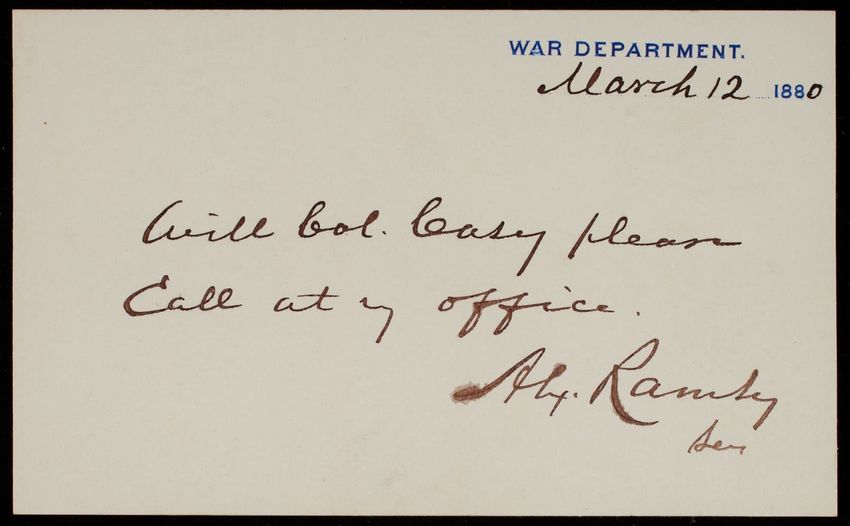 WAR DEPARTMENT.
March 12 1880
Will Col. Casey please
Call at my office.
Alx. Ramsey
Sec